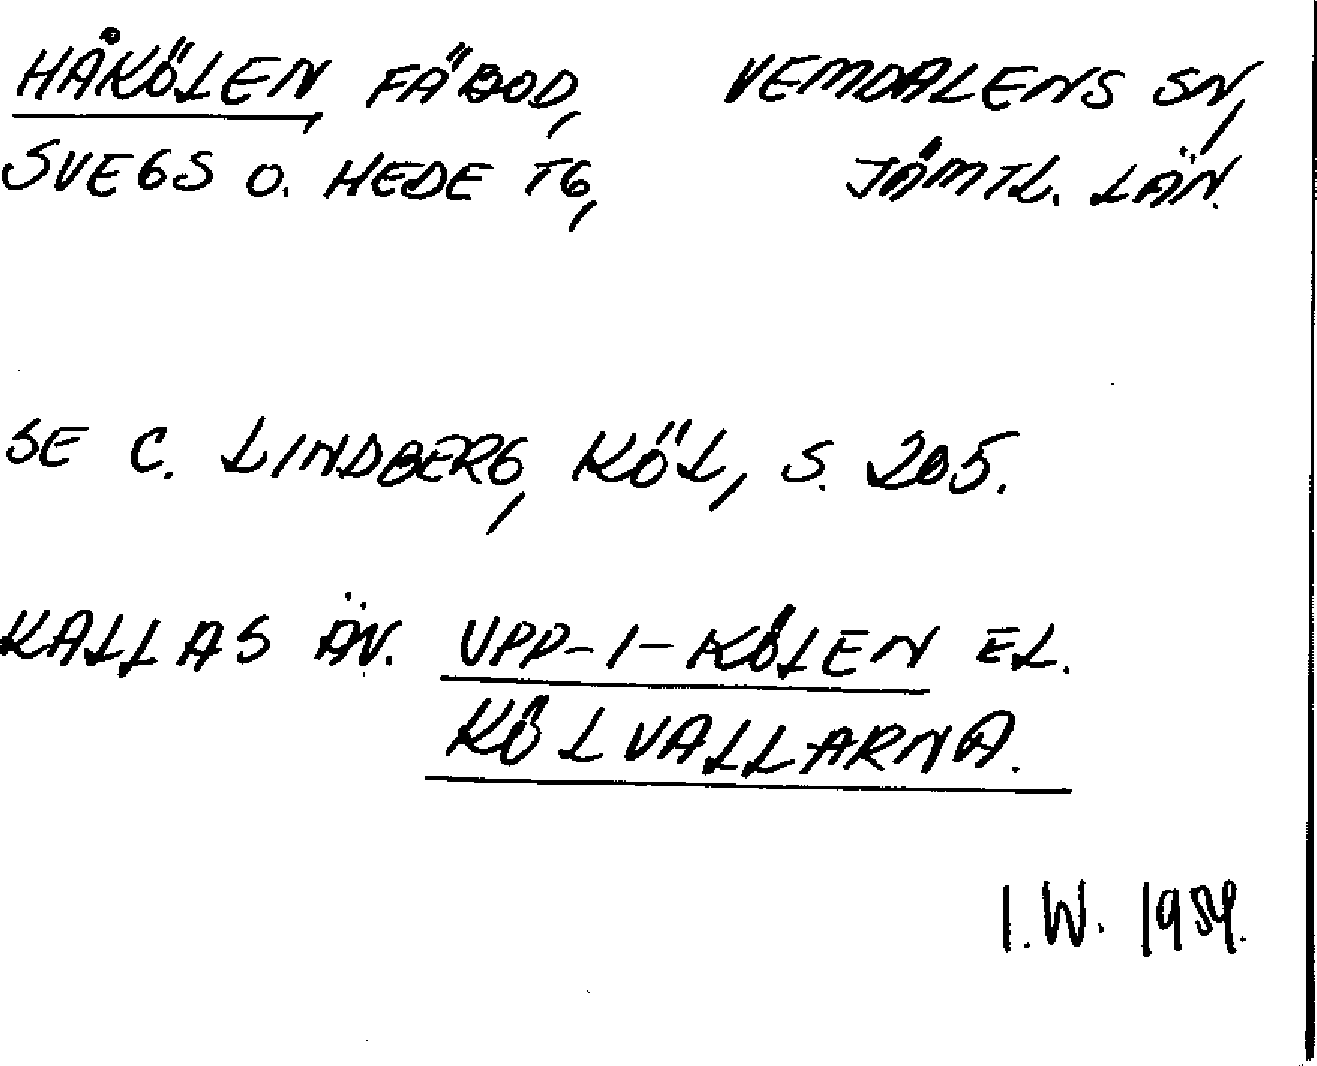 HÅKÖLEN, FÄBOD, VEMDALENS SN,
SVEGS O. HEDE TG, JÄMTL. LÄN.
SE C. LINDBERG, KÖL, S. 205.
KALLAS ÄV. UPP-I-KÖLEN EL.
KÖLVALLARNA.
I.W.